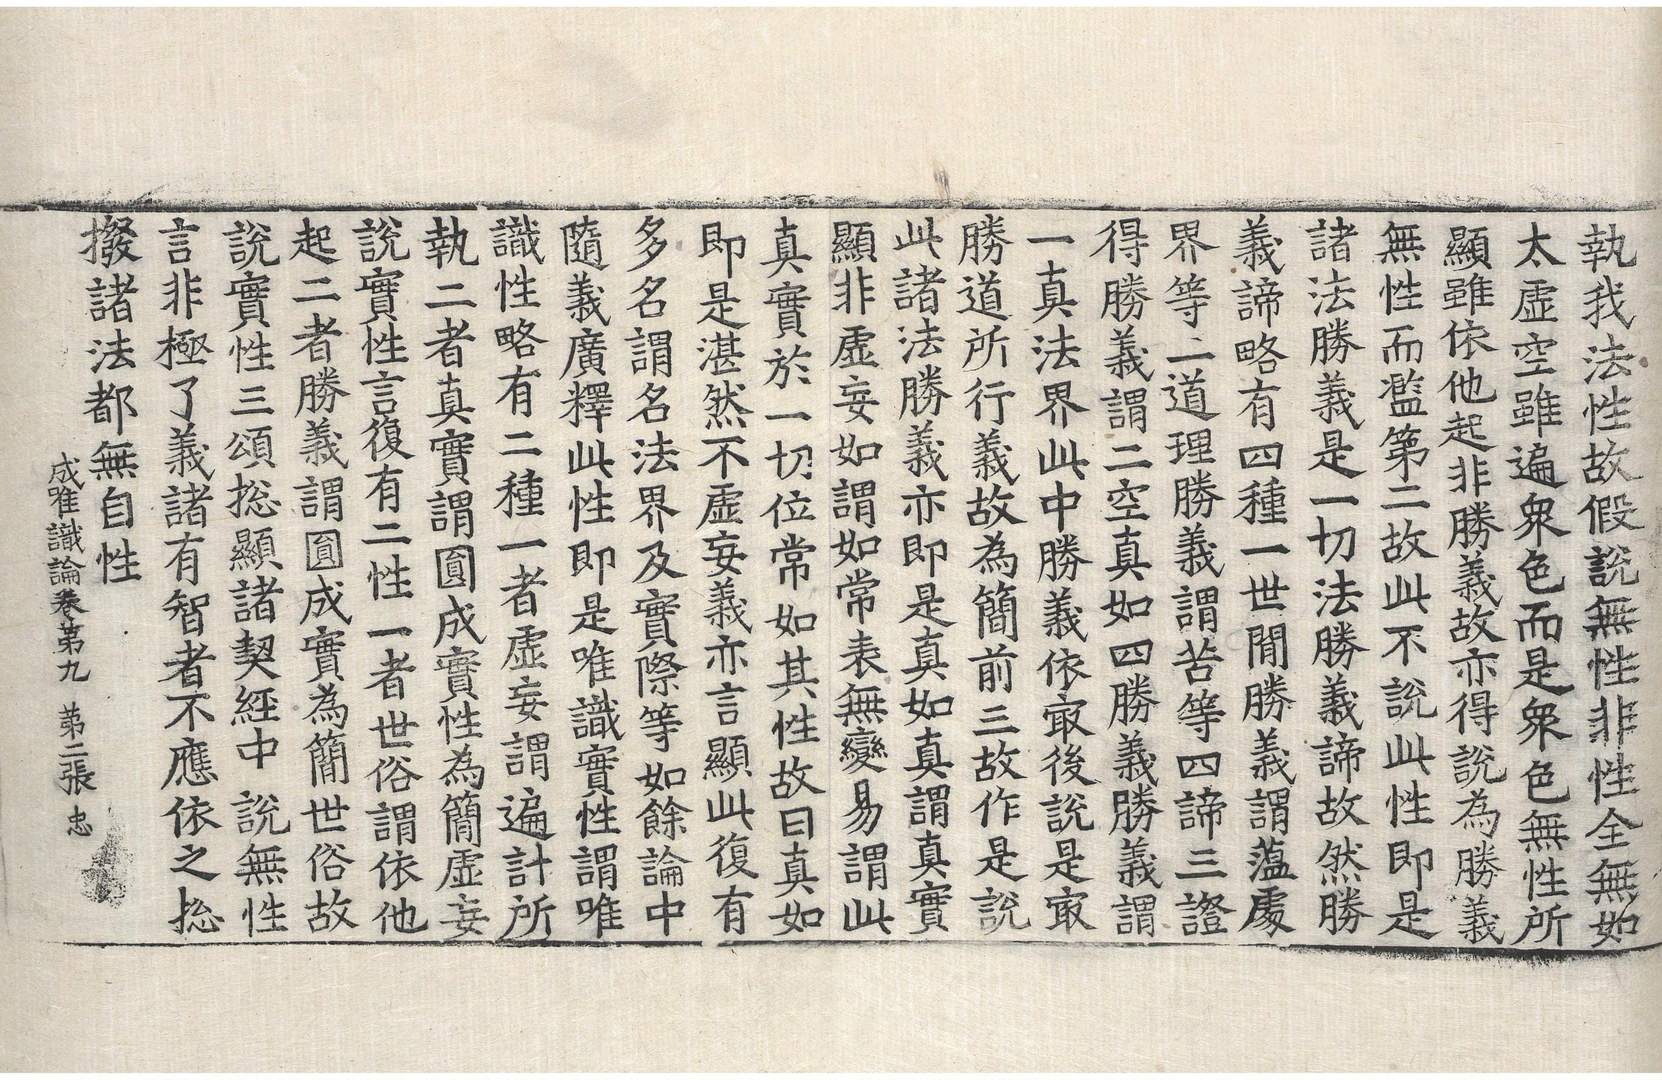 執我法性故假說無性非性全無如
太虛空雖遍衆色而是衆色無性所
顯雖依他起非勝義故亦得說為勝義
無性而濫第二故此不說此性即是
諸法勝義是一切法勝義諦故然勝
義諦略有四種一世閒勝義謂蘊處
界等二道理勝義謂苦等四諦三證
得勝義謂二空真如四勝義勝義謂
一真法界此中勝義依㝡後說是㝡
勝道所行義故為簡前三故作是說
此諸法勝義亦即是真如真謂真實
顯非虛妄如謂如常表無變易謂此
真實於一切位常如其性故曰真如
即是湛然不虛妄義亦言顯此復有
多名謂名法界及實際等如餘論中
隨義廣釋此性即是唯識實性謂唯
識性略有二種一者虛妄謂遍計所
執二者真實謂圓成實性為簡虛妄
說實性言復有二性一者世俗謂依他
起二者勝義謂圓成實為簡世俗故
說實性三頌捴顯諸契經中說無性
言非極了義諸有智者不應依之捴
撥諸法都無自性
成唯識論卷第九 第二張 忠